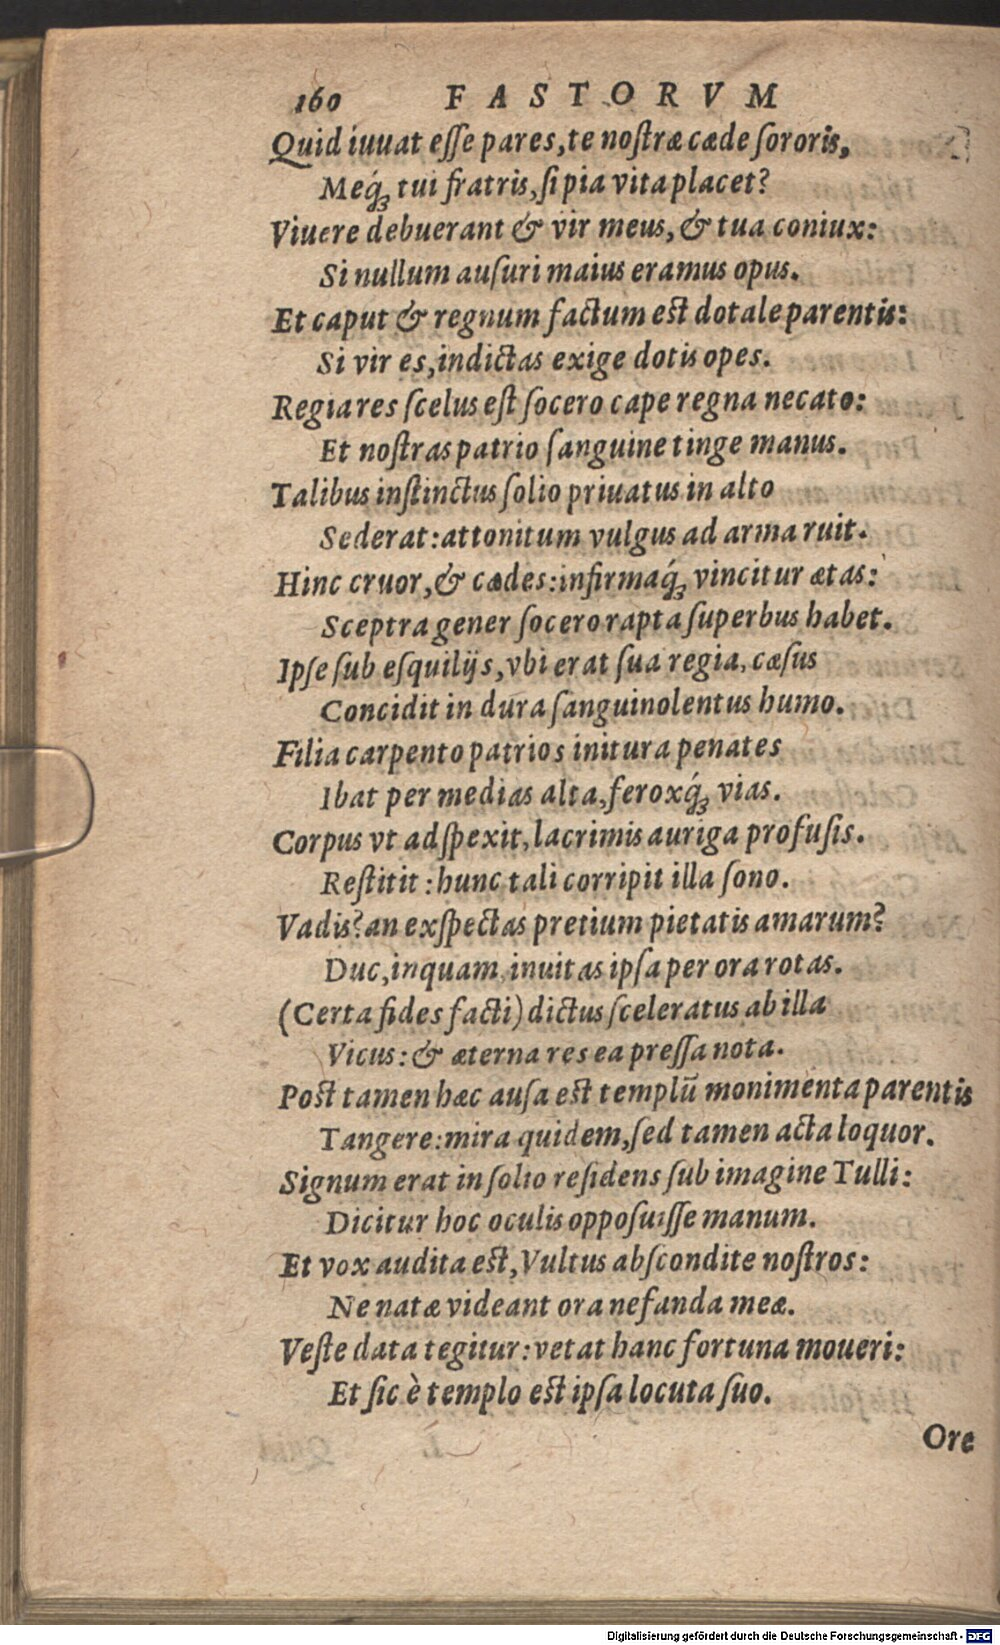 160 FASTORVM
Quid iuuat eſſe pares, te noſtræ cæde ſororis,
Meq́ꝫ tui fratris, ſi pia vita placet?
Viuere debuerant & vir meus, & tua coniux:
Si nullum auſuri maius eramus opus.
Et caput & regnum factum eſt dotale parentis:
Si vir es, indictas exige dotis opes.
Regia res ſcelus eſt ſocero cape regna necato:
Et noſtras patrio ſanguine tinge manus.
Talibus inſtinctus ſolio priuatus in alto
Sederat: attonitum vulgus ad arma ruit.
Hinc cruor, & cædes: infirmaq́ꝫ vincitur ætas:
Sceptra gener ſocero rapta ſuperbus habet.
Ipſe ſub eſquilijs, vbi erat ſua regia, cæſus
Concidit in dura ſanguinolentus humo.
Filia carpento patrios initura penates
Ibat per medias alta, feroxq́ꝫ vias.
Corpus vt adſpexit, lacrimis auriga profuſis.
Reſtitit: hunc tali corripit illa ſono.
Vadis? an exſpectas pretium pietatis amarum?
Duc, inquam, inuitas ipſa per ora rotas.
(Certa fides facti) dictus ſceleratus ab illa
Vicus: & æterna res ea preſſa nota.
Poſt tamen hæc auſa eſt templū monimenta parentis
Tangere: mira quidem, ſed tamen acta loquor.
Signum erat in ſolio reſidens ſub imagine Tulli:
Dicitur hoc oculis oppoſuiſſe manum.
Et vox audita eſt, Vultus abſcondite noſtros:
Ne natæ videant ora nefanda meæ.
Veſte data tegitur: vetat hanc fortuna moueri:
Et ſic è templo eſt ipſa locuta ſuo.
Ore
Digitalisierung gefördert durch die Deutsche Forschungsgemeinschaft - DFG